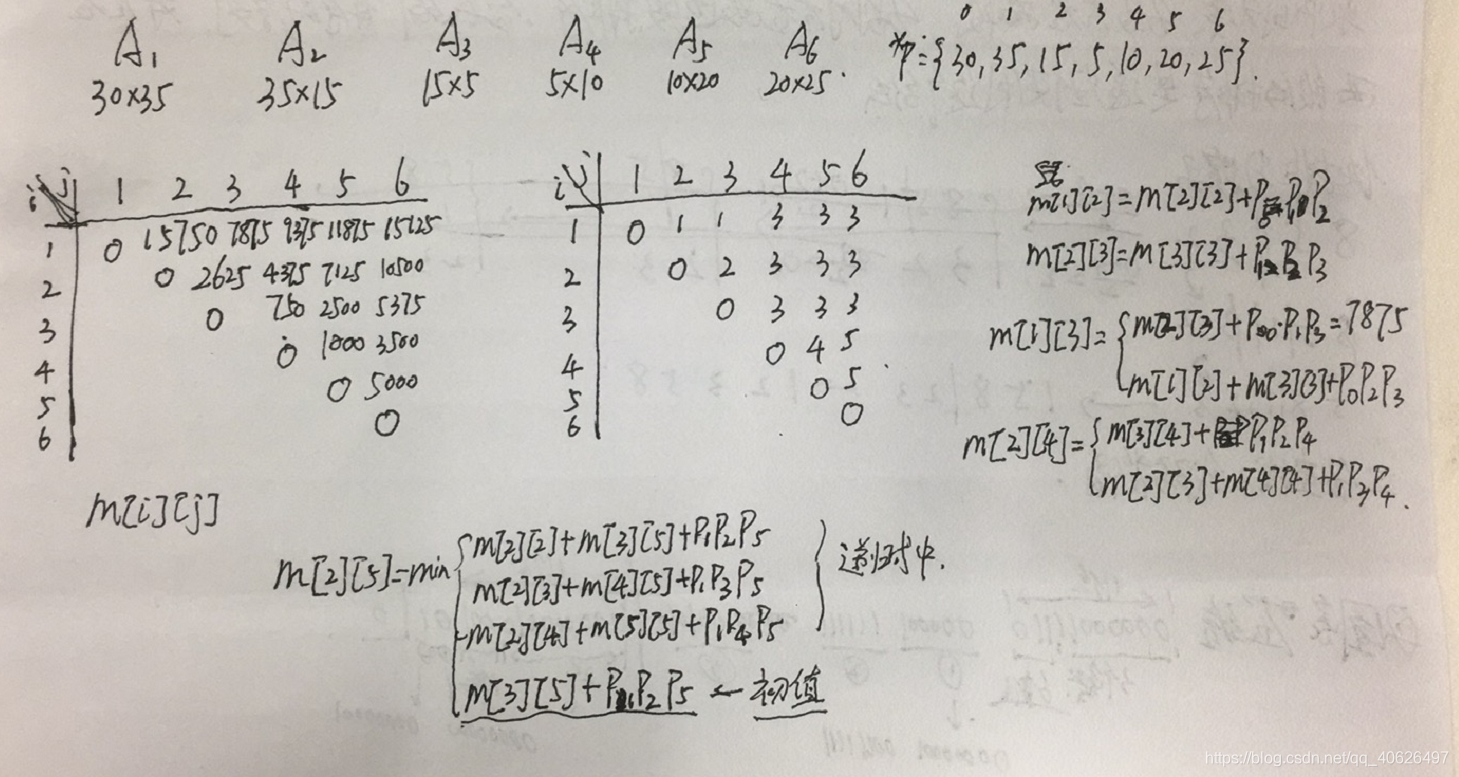 A₁ A₂ A₃ A₄ A₅ A₆
30×35 35×15 15×5 5×10 10×20 20×25.
0 1 2 3 4 5 6
*p={30,35,15,5,10,20,25}.
i j 1 2 3 4 5 6
1 0 15750 7875 9375 11875 15125
2 0 2625 4375 7125 10500
3 0 750 2500 5375
4 0 1000 3500
5 0 5000
6 0
m[i][j]
i j 1 2 3 4 5 6
1 0 1 1 3 3 3
2 0 2 3 3 3
3 0 3 3 3
4 0 4 5
5 0 5
6 0
m[1][2]=m[2][2]+P₀P₂
m[2][3]=m[3][3]+P₁P₂P₃
m[1][3]={m[2][3]+P₀·P₁P₃=7875
m[1][2]+m[3][3]+P₀P₂P₃
m[2][4]={m[3][4]+P₁P₂P₄
m[2][3]+m[4][4]+P₁P₃P₄.
m[2][5]=min{m[2][2]+m[3][5]+P₁P₂P₅
m[2][3]+m[4][5]+P₁P₃P₅
m[2][4]+m[5][5]+P₁P₄P₅
} 递归式中.
m[3][5]+P₁P₂P₅ ← 初值
https://blog.csdn.net/qq_40626497